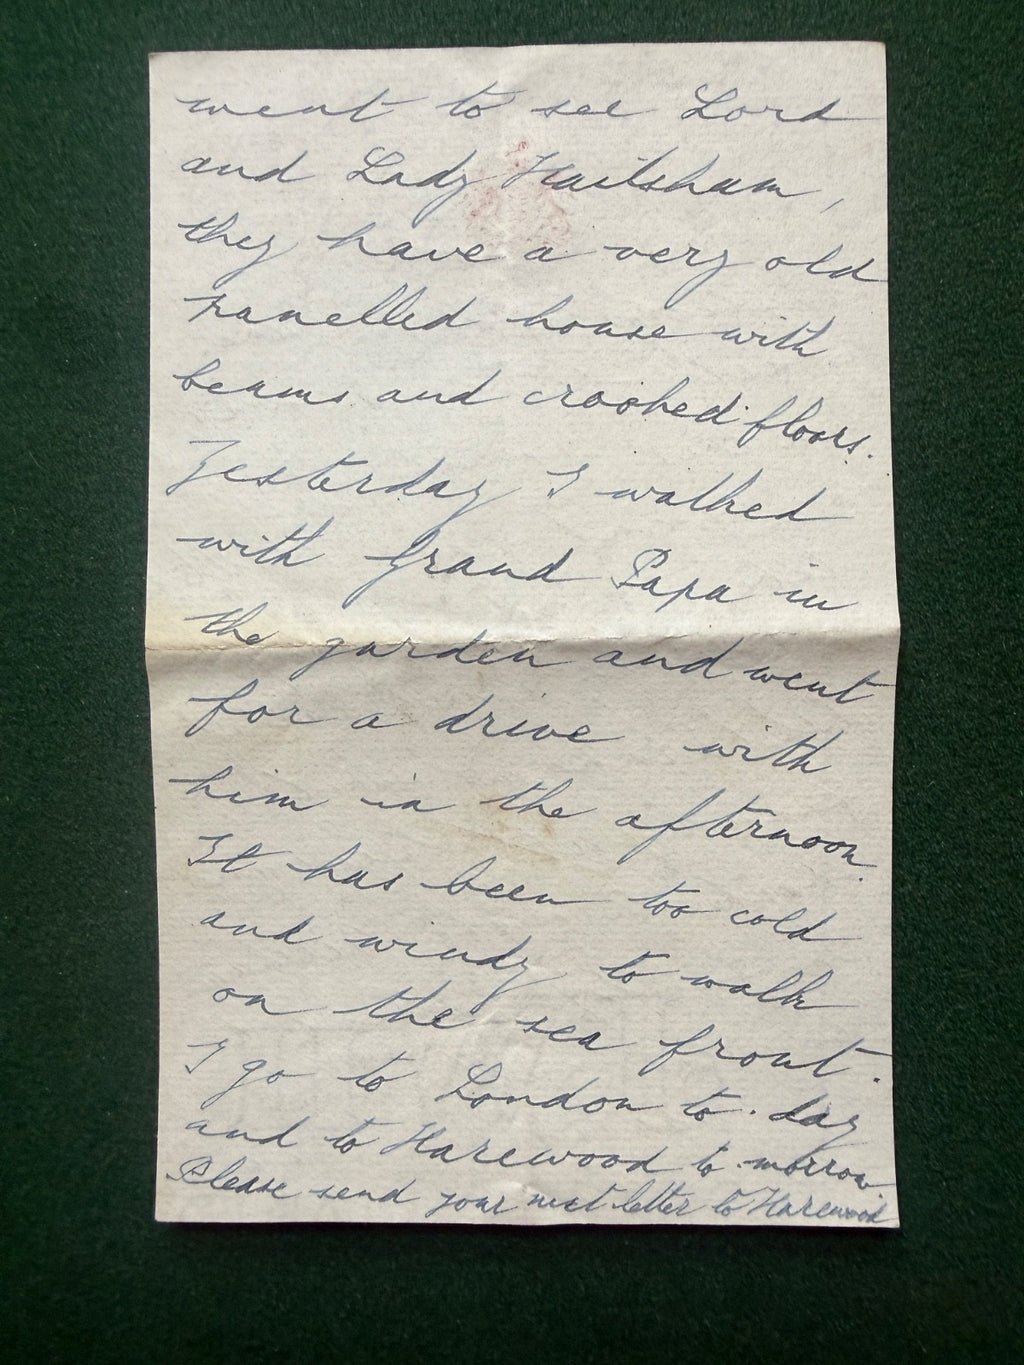 went to see Lord
and Lady Hailsham,
they have a very old
panelled house with
beams and crooked floors.
Yesterday I walked
with Grand Papa in
the garden and went
for a drive with
him in the afternoon.
It has been too cold
and windy to walk
on the sea front.
I go to London to-day
and to Harewood to-morrow
Please send your next letter to Harewood